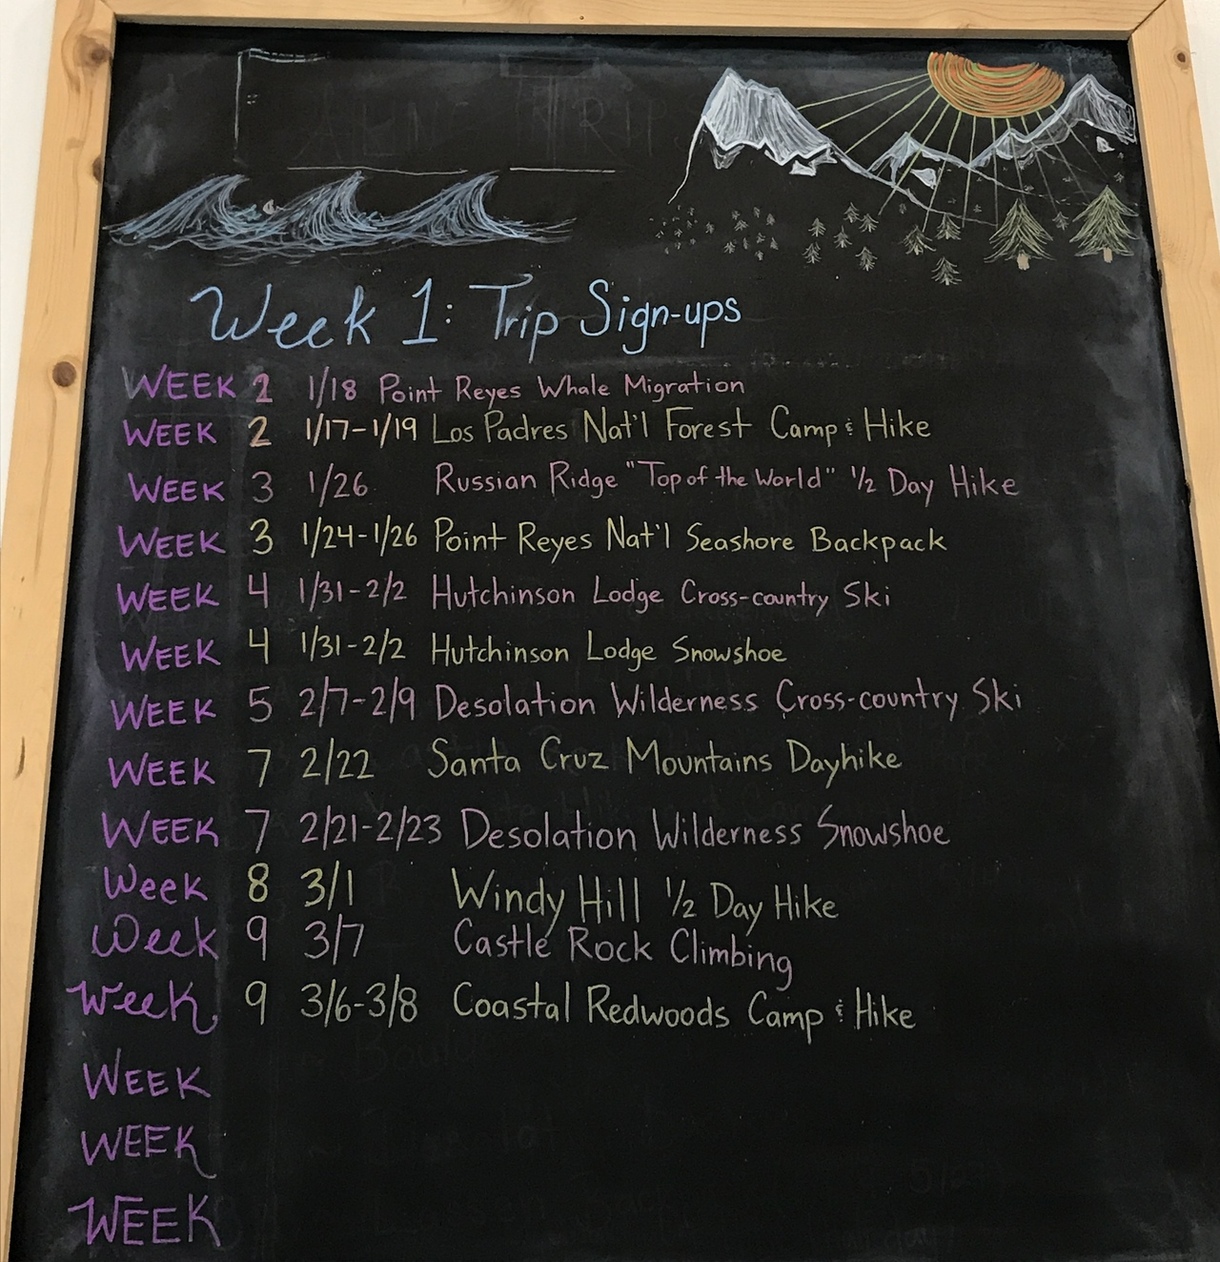 Week 1: Trip Sign-ups
WEEK 2 1/18 Point Reyes Whale Migration
WEEK 2 1/17-1/19 Los Padres Nat'l Forest Camp & Hike
WEEK 3 1/26 Russian Ridge "Top of the World" 1/2 Day Hike
WEEK 3 1/24-1/26 Point Reyes Nat'l Seashore Backpack
WEEK 4 1/31-2/2 Hutchinson Lodge Cross-country Ski
WEEK 4 1/31-2/2 Hutchinson Lodge Snowshoe
WEEK 5 2/7-2/9 Desolation Wilderness Cross-country Ski
WEEK 7 2/22 Santa Cruz Mountains Dayhike
WEEK 7 2/21-2/23 Desolation Wilderness Snowshoe
Week 8 3/1 Windy Hill 1/2 Day Hike
Week 9 3/7 Castle Rock Climbing
Week 9 3/6-3/8 Coastal Redwoods Camp & Hike
WEEK
WEEK
WEEK